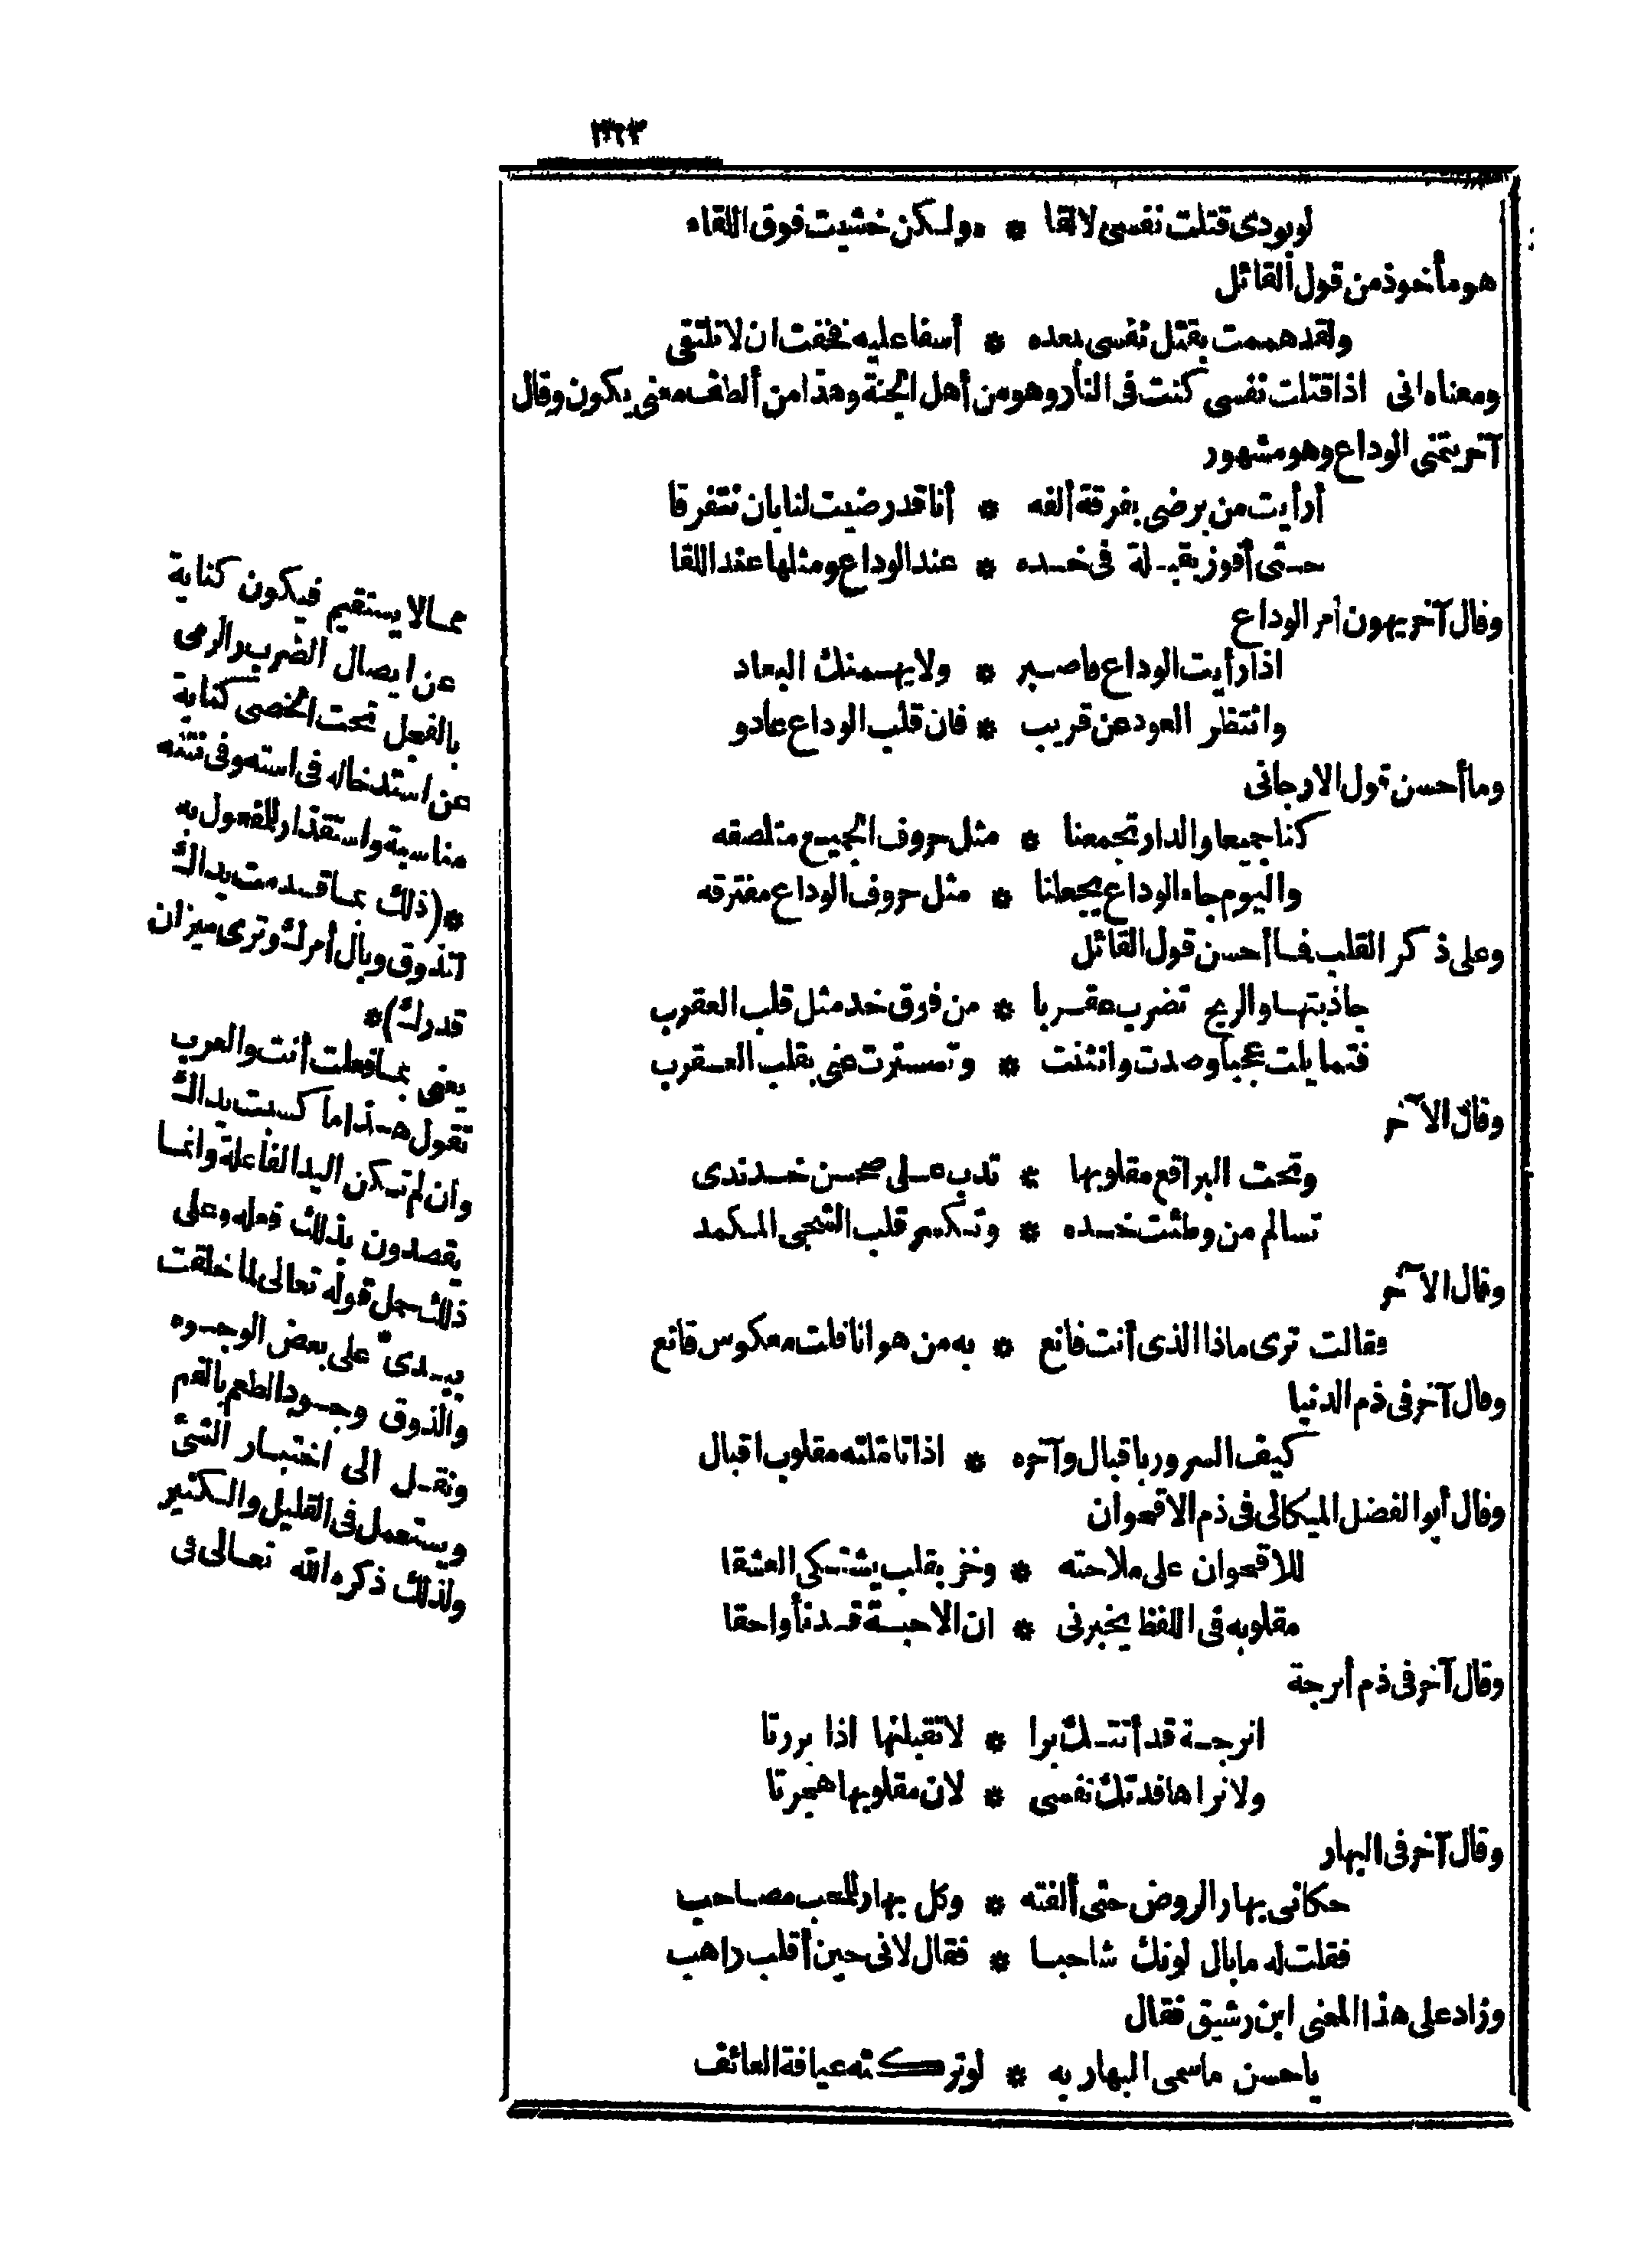 ٣٦٣
لو بودى قتلت نفسى لالقا * ه ولكن خشيت فوق اللقاء
هو مأخوذ من قول القائل
ولقد هممت بقتل نفسى بعده * أسفا عليه نخفت ان لا نلتقى
ومعناه انى اذا قتلت نفسى كنت فى النار وهو من أهل الجنة وهذا من ألطف معنى يكون وقال
آخر يتمنى الوداع وهو مشهور
أرأيت من يرضى بفرقة ألفه * أنا قد رضيت لنا بان نتفرقا
حتى أفوز بقبلة فى خده * عند الوداع ومثلها عند اللقا
وقال آخر يهون أمر الوداع
اذا رأيت الوداع فاصبر * ولا يهمنك البعاد
وانتظر العود عن قريب * فان قلب الوداع عادو
وما أحسن قول الارجانى
كنا جميعا والدار تجمعنا * مثل حروف الجميع ملتصقه
واليوم جاء الوداع يجعلنا * مثل حروف الوداع مفترقه
وعلى ذكر القلب فما أحسن قول القائل
جاذبتها والريح تضرب عقربا * من فوق خد مثل قلب العقرب
فتمايلت عجبا وصدت وانثنت * وتسترت عنى بقلب العقرب
وقال الآخر
وتحت البراقع مقلوبها * تدب على صحن خد ندى
تسالم من وطئت خده * وتكسر قلب الشجى المكمد
وقال الآخر
فقالت ترى ماذا الذى أنت قانع * به من هوانا قلت معكوس قانع
وقال آخر فى ذم الدنيا
كيف السرور باقبال وآخره * اذا تاملته مقلوب اقبال
وقال أبو الفضل الميكالى فى ذم الاقحوان
للاقحوان على ملاحته * وخز بقلب يشتكى العشقا
مقلوبه فى اللفظ يخبرنى * ان الاحبة قد نأوا حقا
وقال آخر فى ذم أترجة
اترجة قد أتتك برا * لا تقبلنها اذا بررتا
ولا تراها فدتك نفسى * لان مقلوبها هجرتا
وقال آخر فى البهار
حكانى بهار الروض حتى ألفته * وكل بهار للمحب مصاحب
فقلت له ما بال لونك شاحبا * فقال لانى حين أقلب راهب
وزاد على هذا المعنى ابن رشيق فقال
يا حسن ماسمى البهار به * لو تركته عيافة العائف
مما لا يستقيم فيكون كناية
عن ايصال الضرب والرمى
بالفعل تحت الخصى كناية
عن استدخاله فى استه وفى نتنه
مناسبة واستقذار للمفعول به
*(ذلك بما قدمت يداك
لتذوق وبال أمرك وترى ميزان
قدرك)*
يعنى بما فعلت أنت والعرب
تقول هذا ما كسبت يداك
وان لم تكن اليد الفاعلة وانما
يقصدون بذلك فعله وعلى
ذلك حمل قوله تعالى لما خلقت
بيدىّ على بعض الوجوه
والذوق وجود الطعم بالفم
ونقل الى اختبار الشئ
ويستعمل فى القليل والكثير
ولذلك ذكره الله تعالى فى